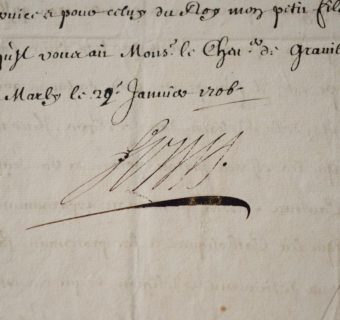 pour celuy du Roy mon petit fils
qu'il vous ait Mons.r le Chev.er de
Marly le 29.e Janvier 1706
Louis